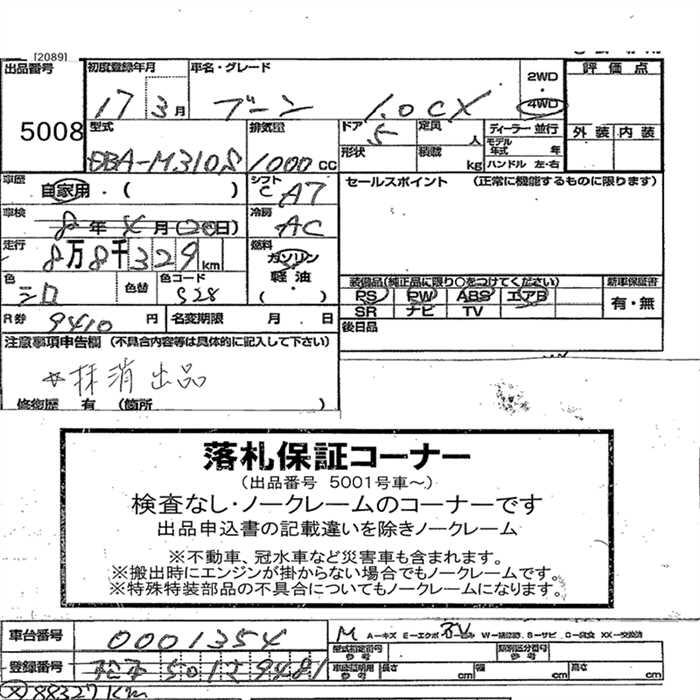 [2089]
出品番号 初度登録年月 車名・グレード 2WD 評価点
17 3月 ブーン 1.0CX 4WD
5008 型式 排気量 ドア 定員 ディーラー 並行 外装 内装
DBA-M310S 1000cc 5 人 モデル年式 年
形状 積載 kg ハンドル 左・右
車歴 自家用・( ) シフト C AT セールスポイント (正常に機能するものに限ります)
車検 8年 月(20日) 冷房 AC
走行 8万8千329km 燃料 ガソリン 軽油 (・)
色 シロ 色替 色コード S28 装備品(純正品に限り○をつけてください) 新車保証書
PS PW ABS エアB 有・無
SR ナビ TV
R券 9410円 名変期限 月 日 後日品
注意事項申告欄(不具合内容等は具体的に記入して下さい)
☆抹消出品
修復歴 有 (箇所 )
落札保証コーナー
(出品番号 5001号車~)
検査なし・ノークレームのコーナーです
出品申込書の記載違いを除きノークレーム
※不動車、冠水車など災害車も含まれます。
※搬出時にエンジンが掛からない場合でもノークレームです。
※特殊特装部品の不具合についてもノークレームになります。
車台番号 0001354 M A-キズ E-エクボ W-補修跡 S-サビ C-腐食 XX-交換済
型式指定番号 類別区分番号
登録番号 松本 501 9481 長さ cm 幅 cm 高さ cm
88327Km